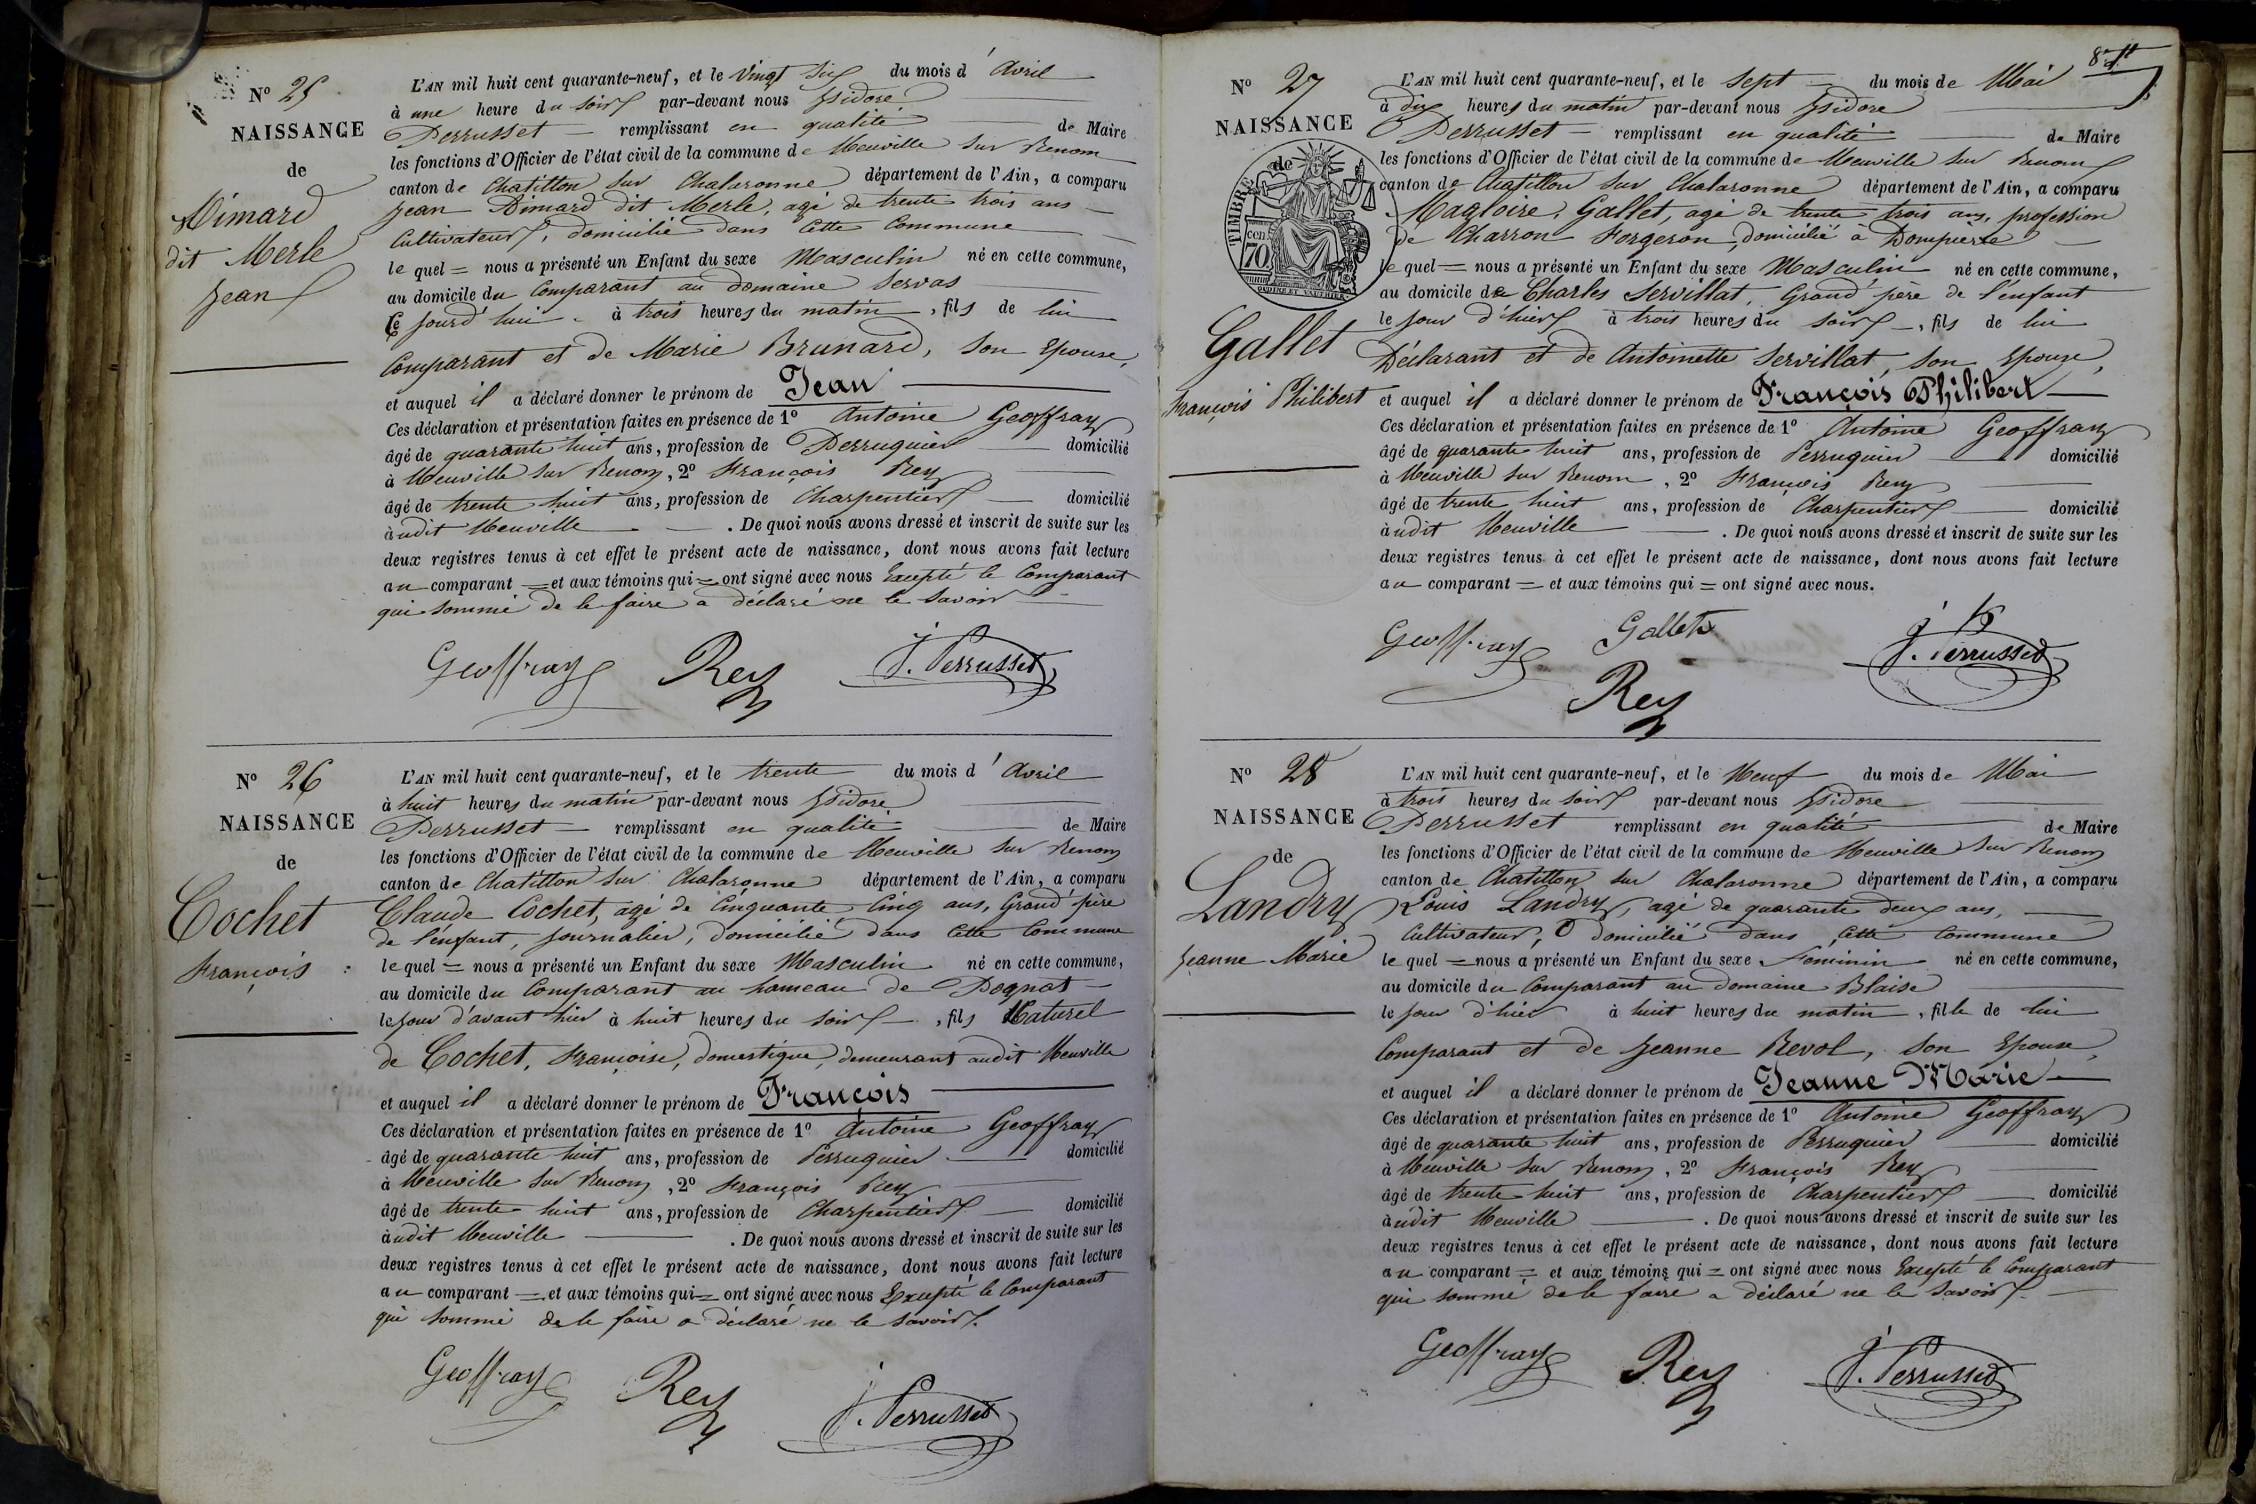 N° 25
NAISSANCE
de
Dimard
dit Merle
Jean
L'AN mil huit cent quarante-neuf, et le vingt six du mois d'Avril
à une heure du soir par-devant nous Isidore
Perrusset remplissant en qualité de Maire
les fonctions d'Officier de l'état civil de la commune de Neuville sur Renom
canton de Chatillon sur Chalaronne département de l'Ain, a comparu
Jean Dimard dit Merle, agé de trente trois ans
Cultivateur, domicilié dans cette Commune
le quel = nous a présenté un Enfant du sexe Masculin né en cette commune,
au domicile du Comparant au domaine Servas
Ce jourd'hui à trois heures du matin, fils de lui
Comparant et de Marie Brunard, son Epouse,
et auquel il a déclaré donner le prénom de Jean
Ces déclaration et présentation faites en présence de 1° Antoine Geoffray
âgé de quarante huit ans, profession de Perruquier domicilié
à Neuville sur Renom, 2° François Rey
âgé de trente huit ans, profession de Charpentier domicilié
audit Neuville . De quoi nous avons dressé et inscrit de suite sur les
deux registres tenus à cet effet le présent acte de naissance, dont nous avons fait lecture
au comparant = et aux témoins qui = ont signé avec nous Excepté le Comparant
qui sommé de le faire a déclaré ne le savoir
Geoffray Rey J. Perrusset
N° 26
NAISSANCE
de
Cochet
François
L'AN mil huit cent quarante-neuf, et le trente du mois d'Avril
à huit heures du matin par-devant nous Isidore
Perrusset remplissant en qualité de Maire
les fonctions d'Officier de l'état civil de la commune de Neuville sur Renom
canton de Chatillon sur Chalaronne département de l'Ain, a comparu
Claude Cochet, agé de Cinquante Cinq ans, Grand'père
de l'enfant, journalier, domicilié dans cette Commune
le quel = nous a présenté un Enfant du sexe Masculin né en cette commune,
au domicile du Comparant au hameau de Pognat
le jour d'avant hier à huit heures du soir, fils Naturel
de Cochet, Françoise, domestique, demeurant audit Neuville
et auquel il a déclaré donner le prénom de François
Ces déclaration et présentation faites en présence de 1° Antoine Geoffray
âgé de quarante huit ans, profession de Perruquier domicilié
à Neuville sur Renom, 2° François Rey
âgé de trente huit ans, profession de Charpentier domicilié
audit Neuville . De quoi nous avons dressé et inscrit de suite sur les
deux registres tenus à cet effet le présent acte de naissance, dont nous avons fait lecture
au comparant = et aux témoins qui = ont signé avec nous Excepté le Comparant
qui sommé de le faire a déclaré ne le savoir.
Geoffray Rey J. Perrusset
N° 27
NAISSANCE
de
TIMBRE
cen
70
Gallet
François Philibert
L'AN mil huit cent quarante-neuf, et le sept du mois de Mai
à dix heures du matin par-devant nous Isidore
Perrusset remplissant en qualité de Maire
les fonctions d'Officier de l'état civil de la commune de Neuville sur Renom
canton de Chatillon sur Chalaronne département de l'Ain, a comparu
Magloire Gallet, agé de trente trois ans, profession
de Charron Forgeron, domicilié à Dompierre
le quel = nous a présenté un Enfant du sexe Masculin né en cette commune,
au domicile de Charles Servillat, Grand'père de l'enfant
le jour d'hier à trois heures du soir, fils de lui
Déclarant et de Antoinette Servillat, son Epouse,
et auquel il a déclaré donner le prénom de François Philibert
Ces déclaration et présentation faites en présence de 1° Antoine Geoffray
âgé de quarante huit ans, profession de Perruquier domicilié
à Neuville sur Renom, 2° François Rey
âgé de trente huit ans, profession de Charpentier domicilié
audit Neuville . De quoi nous avons dressé et inscrit de suite sur les
deux registres tenus à cet effet le présent acte de naissance, dont nous avons fait lecture
au comparant = et aux témoins qui = ont signé avec nous.
Geoffray Gallet J. Perrusset
Rey
N° 28
NAISSANCE
de
Landry
Jeanne Marie
L'AN mil huit cent quarante-neuf, et le Neuf du mois de Mai
à trois heures du soir par-devant nous Isidore
Perrusset remplissant en qualité de Maire
les fonctions d'Officier de l'état civil de la commune de Neuville sur Renom
canton de Chatillon sur Chalaronne département de l'Ain, a comparu
Louis Landry, agé de quarante deux ans,
Cultivateur, domicilié dans cette Commune
le quel = nous a présenté un Enfant du sexe Feminin né en cette commune,
au domicile du Comparant au domaine Blaise
le jour d'hier à huit heures du matin, fille de lui
Comparant et de Jeanne Revol, son Epouse,
et auquel il a déclaré donner le prénom de Jeanne Marie
Ces déclaration et présentation faites en présence de 1° Antoine Geoffray
âgé de quarante huit ans, profession de Perruquier domicilié
à Neuville sur Renom, 2° François Rey
âgé de trente huit ans, profession de Charpentier domicilié
audit Neuville . De quoi nous avons dressé et inscrit de suite sur les
deux registres tenus à cet effet le présent acte de naissance, dont nous avons fait lecture
au comparant = et aux témoins qui = ont signé avec nous Excepté le Comparant
qui sommé de le faire a déclaré ne le savoir.
Geoffray Rey J. Perrusset